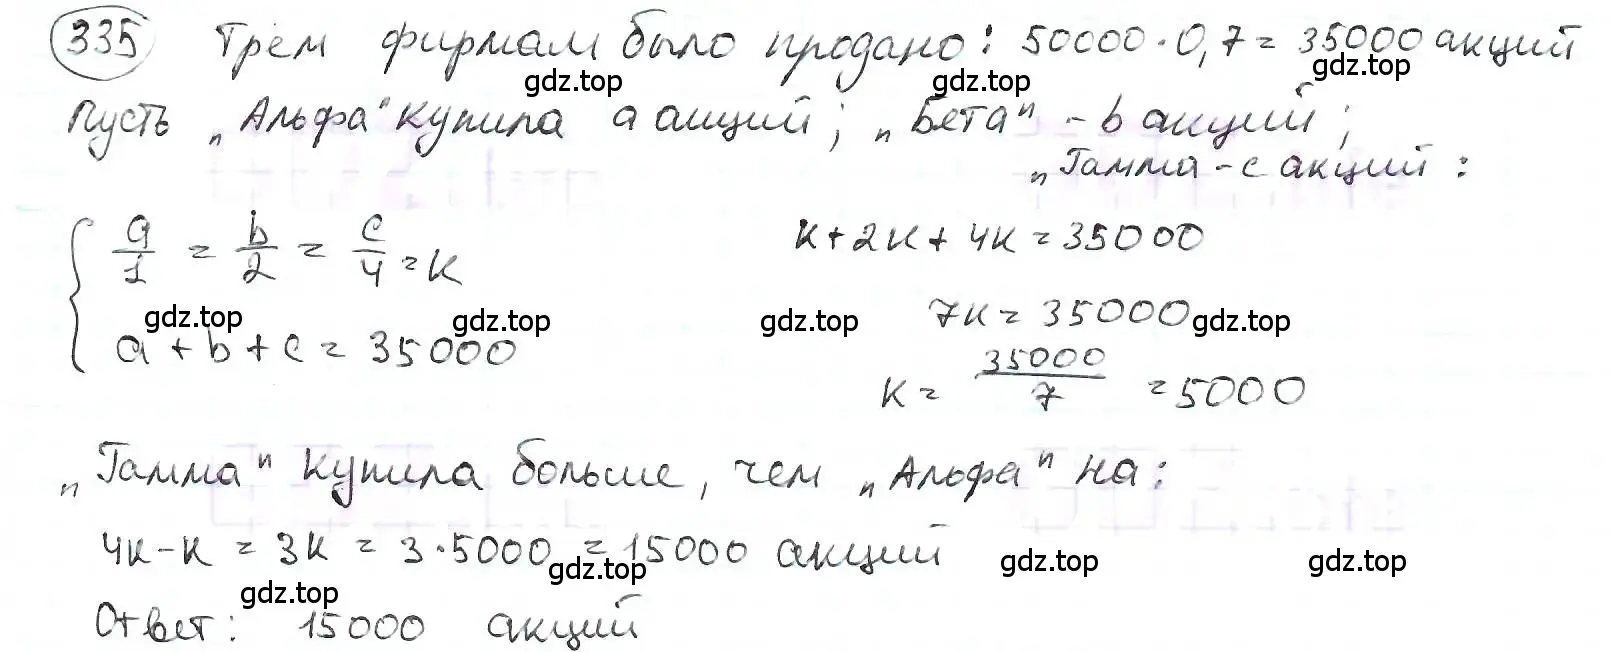 335 Трём фирмам было продано: 50000·0,7 = 35000 акций
Пусть „Альфа" купила a акций; „Бета" - b акций;
„Гамма - c акций:
a/1 = b/2 = c/4 = к
a + b + c = 35000
к + 2к + 4к = 35000
7к = 35000
к = 35000/7 = 5000
„Гамма" купила больше, чем „Альфа" на:
4к - к = 3к = 3·5000 = 15000 акций
Ответ: 15000 акций
gdz.top gdz.top gdz.top
gdz.top gdz.top gdz.top gdz.top
gdz.top gdz.top gdz.top gdz.top